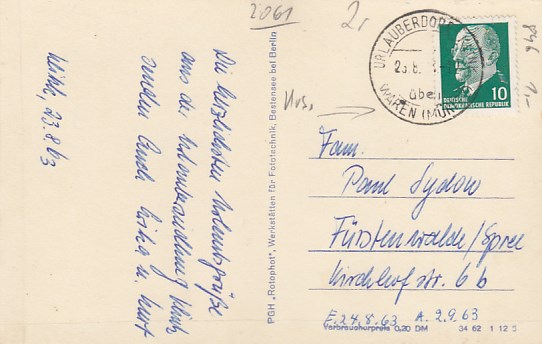 2061
2,-
URLAUBERDORF
23.8.
über
WAREN (MÜR
10
DEUTSCHE
DEMOKRATISCHE REPUBLIK
Die herzlichsten Urlaubsgrüße
aus
senden Euch u. Kurt
23.8.63
PGH „Rotophot", Werkstätten für Fototechnik, Bestensee bei Berlin
Fam.
Paul Sydow
Fürstenwalde/Spree
Kirchhof str. 6 b
E. 24.8.63 A. 2.9.63
Verbraucherpreis 0,20 DM 34 62 1 12 5